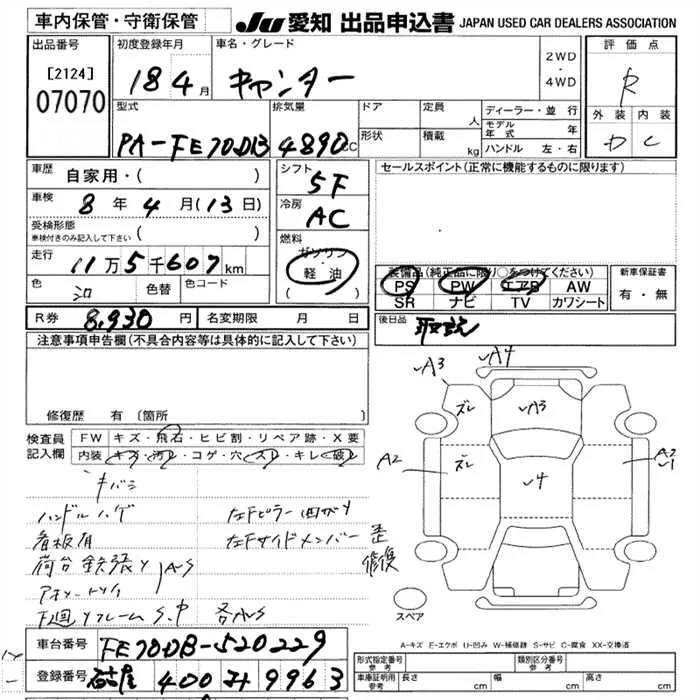 車内保管・守衛保管
JU 愛知 出品申込書 JAPAN USED CAR DEALERS ASSOCIATION
出品番号
[2124]
07070
初度登録年月
18 4月
車名・グレード
キャンター
2WD
・
4WD
評価点
R
外装 内装
D C
型式
PA-FE70DB
排気量
4890cc
ドア
形状
定員
人
積載
kg
ディーラー・並行
モデル年式 年
ハンドル 左・右
車歴
自家用・( )
車検
8年4月(13日)
受検形態
車検付きのみ記入して下さい ( )
走行
11万5千607km
色
シロ
色替
色コード
シフト
5F
冷房
AC
燃料
ガソリン
・
軽油
( )
セールスポイント(正常に機能するものに限ります)
装備品(純正品に限り○をつけてください)
PS PW エアB AW
SR ナビ TV カワシート
新車保証書
有・無
R券 8,930円
名変期限 月 日
後日品
取説
注意事項申告欄(不具合内容等は具体的に記入して下さい)
修復歴 有 〔箇所
検査員記入欄
FW キズ・飛石・ヒビ割・リペア跡・X要
内装 キズ・汚レ・コゲ・穴・スレ・キレ・破レ
キバミ
ハンドルハゲ
看板有
荷台鉄張り
下廻りフレームS.P 各AS
左Fピラー曲がり
左Fサイドメンバー歪
修復
A3
A4
ズレ
A3
A2
ズレ
4
A2
1
スペア
A-キズ E-エクボ U-凹み W-補修跡 S-サビ C-腐食 XX-交換済
車台番号
FE70DB-520229
登録番号
名古屋 400 ス 9963
形式指定番号 参考
類別区分番号 参考
車庫証明用 参考
長さ cm
幅 cm
高さ cm